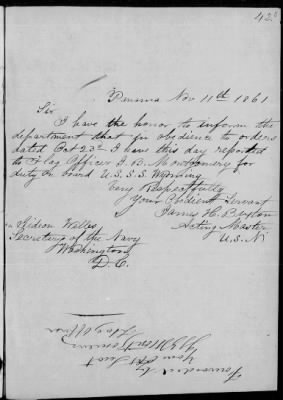 42
Panama Nov 11th 1861
Sir
I have the honor to inform the
department that in obedience to orders
dated Oct 23d I have this day reported
to Flag Officer J. B. Montgomery for
duty on board U.S.S.S. Wyoming
Very Respectfully
Your Obedient Servant
James H. Buxton
Acting Master
U.S.N
Gideon Welles
Secretary of the Navy
Washington
D.C.
Forwarded by
Your Obt Servt
J B Montgomery
Flag Officer